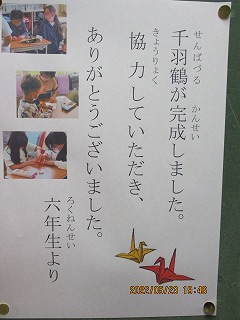 せんばづる　かんせい
千羽鶴が完成しました。
きょうりょく
協力していただき、
ありがとうございました。
ろくねんせい
六年生より
2022/05/23 19:48